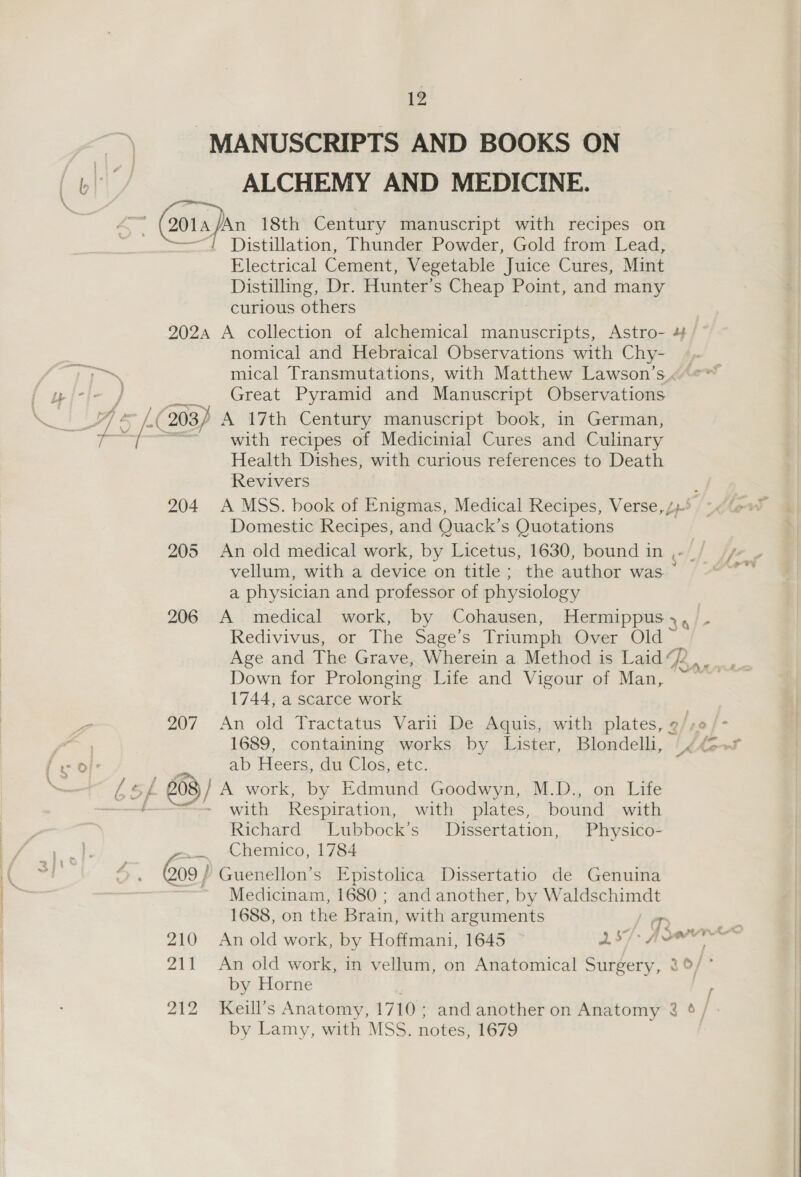 12
MANUSCRIPTS AND BOOKS ON
ALCHEMY AND MEDICINE.
201A An 18th Century manuscript with recipes on
Distillation, Thunder Powder, Gold from Lead,
Electrical Cement, Vegetable Juice Cures, Mint
Distilling, Dr. Hunter's Cheap Point, and many
curious others
202A A collection of alchemical manuscripts, Astro-
nomical and Hebraical Observations with Chy-
mical Transmutations, with Matthew Lawson's
Great Pyramid and Manuscript Observations
203 A 17th Century manuscript book, in German,
with recipes of Medicinial Cures and Culinary
Health Dishes, with curious references to Death
Revivers
204 A MSS. book of Enigmas, Medical Recipes, Verse,
Domestic Recipes, and Quack's Quotations
205 An old medical work, by Licetus, 1630, bound in
vellum, with a device on title; the author was
a physician and professor of physiology
206 A medical work, by Cohausen, Hermippus
Redivivus, or The Sage's Triumph Over Old
Age and The Grave, Wherein a Method is Laid
Down for Prolonging Life and Vigour of Man,
1744, a scarce work
207 An old Tractatus Varii De Aquis, with plates,
1689, containing works by Lister, Blondelli,
ab Heers, du Clos, etc.
208 A work, by Edmund Goodwyn, M.D., on Life
with Respiration, with plates, bound with
Richard Lubbock's Dissertation, Physico-
Chemico, 1784
209 Guenellon's Epistolica Dissertatio de Genuina
Medicinam, 1680; and another, by Waldschimdt
1688, on the Brain, with arguments
210 An old work, by Hoffmani, 1645
211 An old work, in vellum, on Anatomical Surgery,
by Horne
212 Keill's Anatomy, 1710; and another on Anatomy
by Lamy, with MSS. notes, 1679